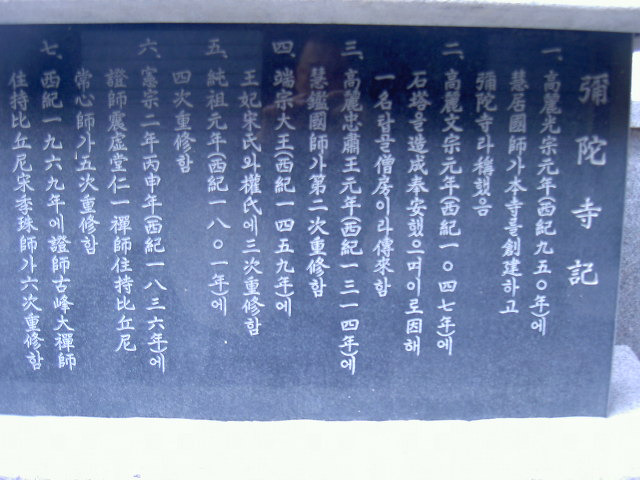 彌陀寺記
一. 高麗光宗元年(西紀九五○年)에
慧居國師가 本寺를 創建하고
彌陀寺라 稱했음
二. 高麗文宗元年(西紀一○四七年)에
石塔을 造成奉安했으며 이로因해
一名탑골僧房이라 傳來함
三. 高麗忠肅王元年(西紀一三一四年)에
慧鑑國師가 第二次重修함
四. 端宗大王(西紀一四五九年)에
王妃宋氏와 權氏에 三次重修함
五. 純祖元年(西紀一八○一年)에
四次重修함
六. 憲宗二年丙申年(西紀一八三六年)에
證師震虛堂仁一禪師住持比丘尼
常心師가 五次重修함
七. 西紀一九六九年에 證師古峰大禪師
住持比丘尼宋季珠師가 六次重修함